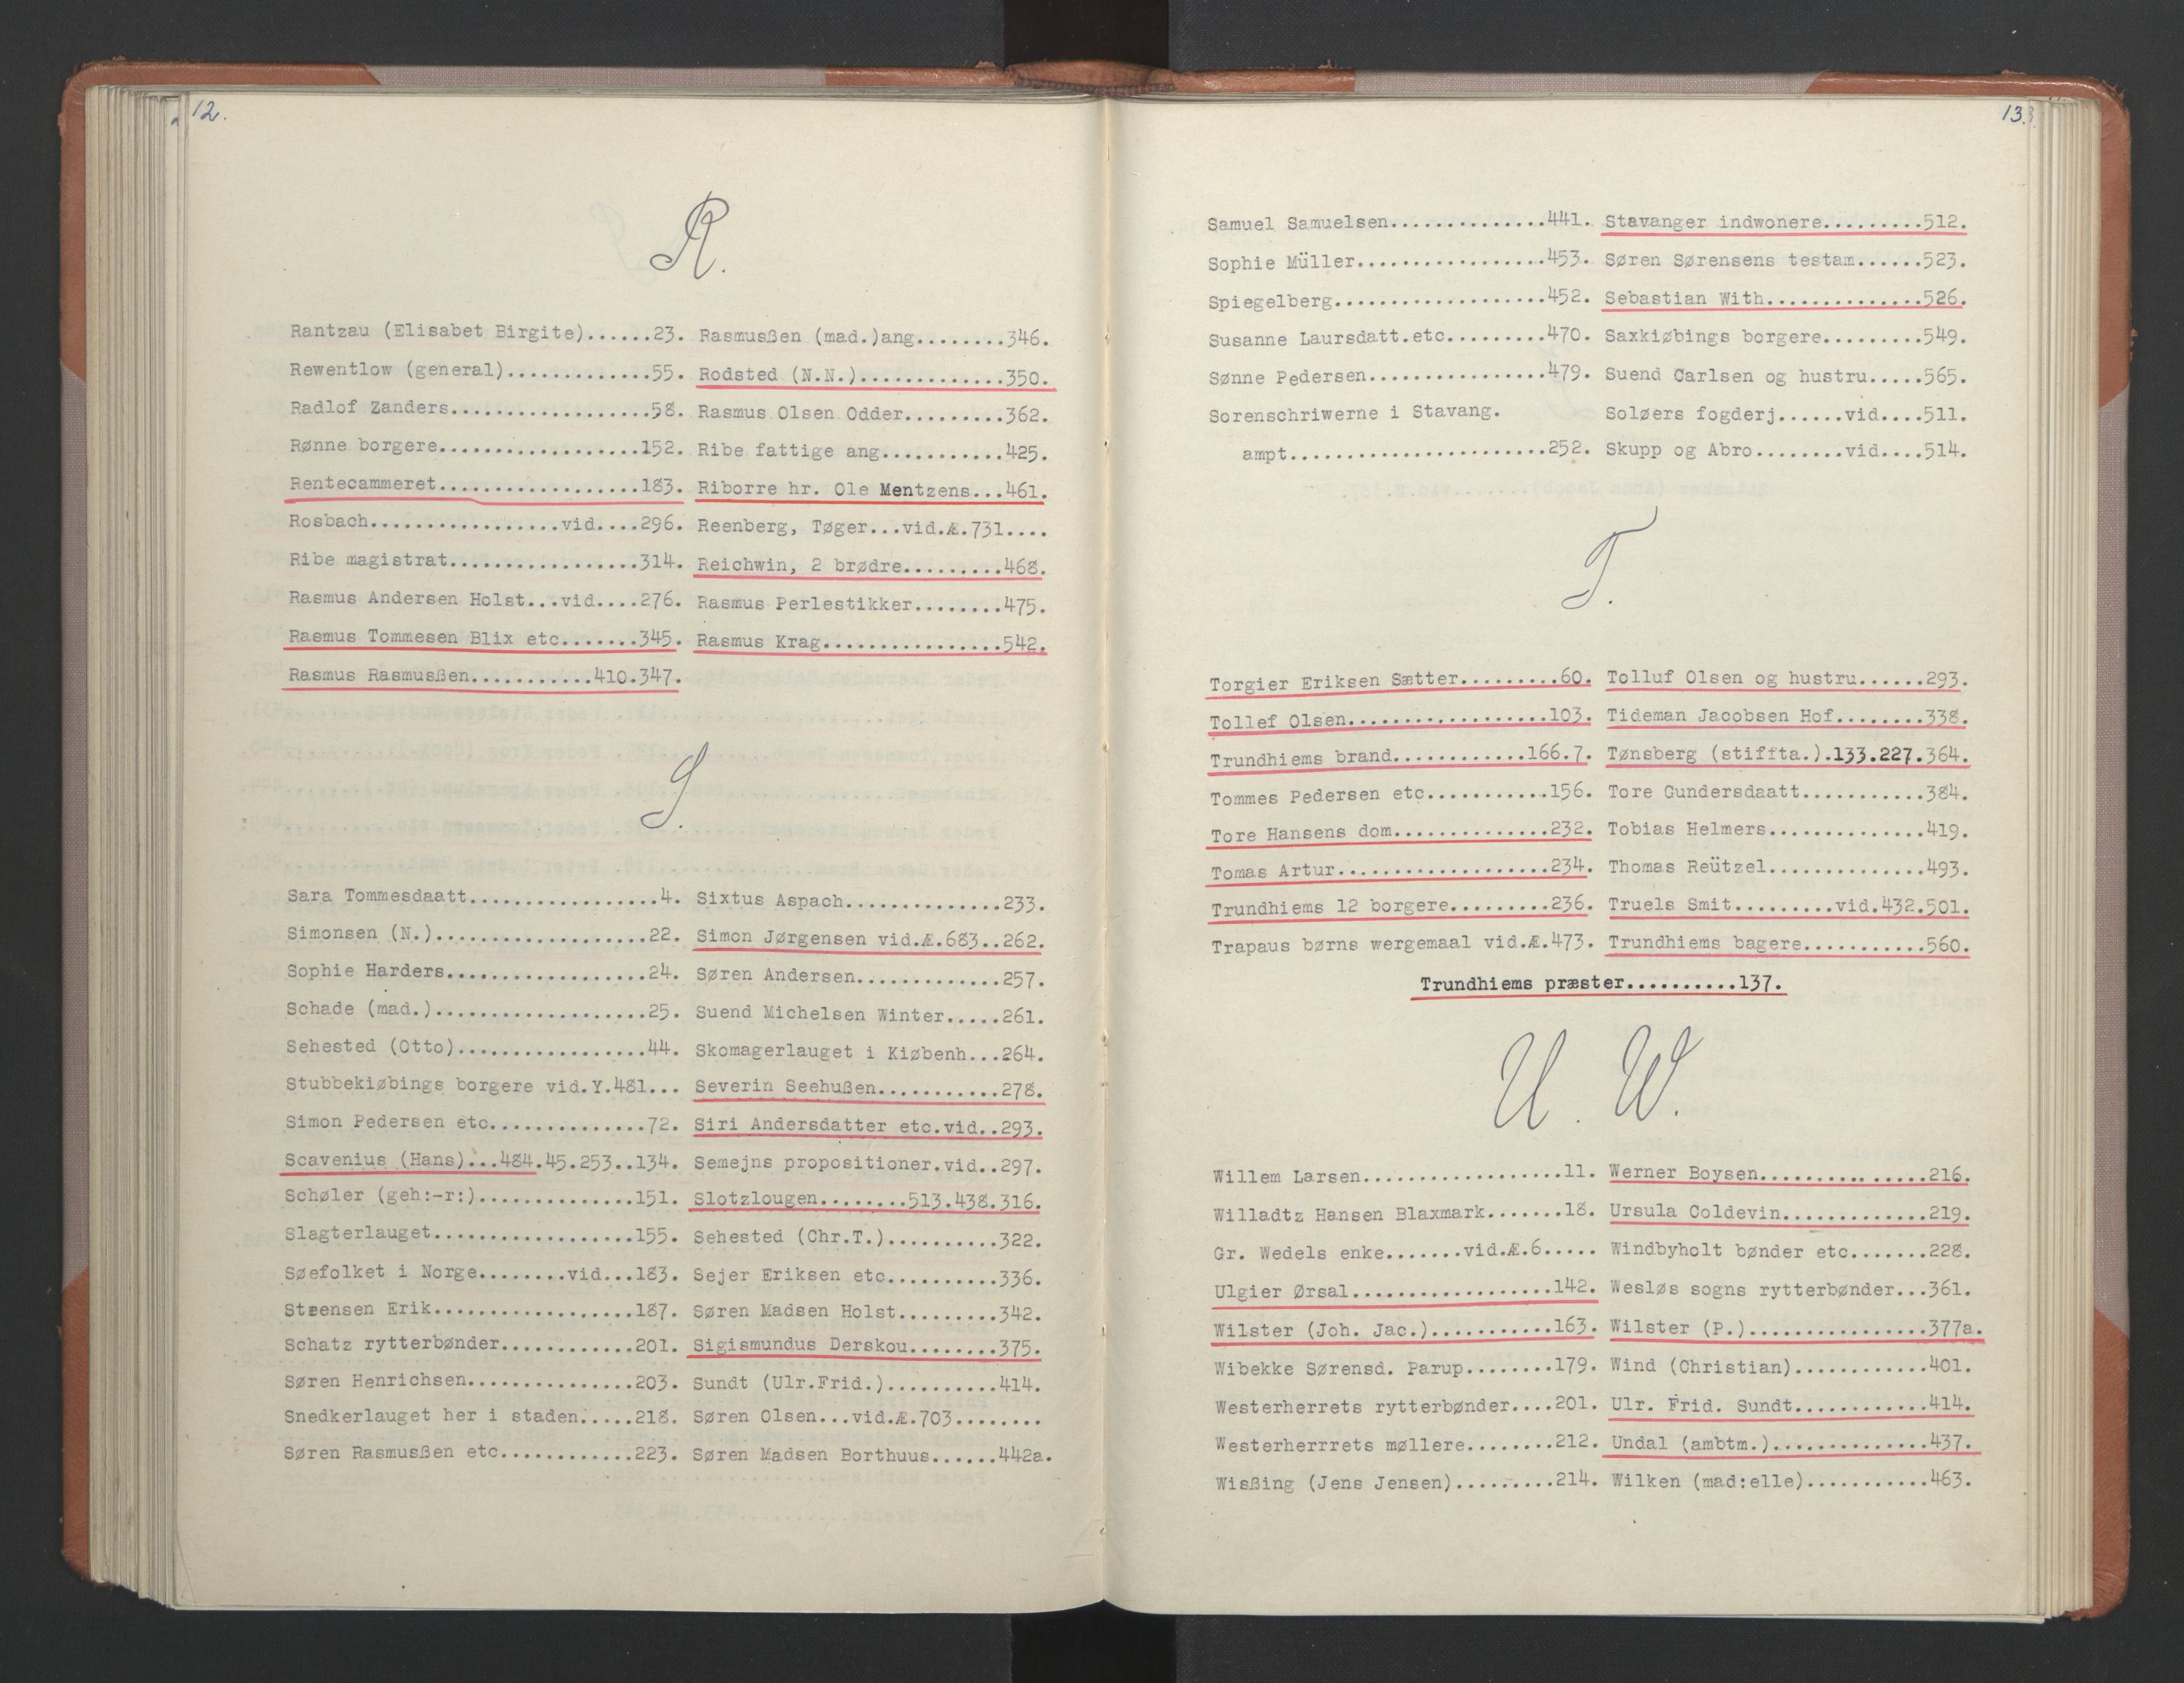 12.
R.
Rantzau (Elisabet Birgite)......23.
Rewentlow (general).............55.
Radlof Zanders..................58.
Rønne borgere..................152.
Rentecammeret..................183.
Rosbach.................vid....296.
Ribe magistrat.................314.
Rasmus Andersen Holst...vid....276.
Rasmus Tommesen Blix etc.......345.
Rasmus Rasmusßen...........410.347.
Rasmusßen (mad.)ang........346.
Rodsted (N.N.).............350.
Rasmus Olsen Odder.........362.
Ribe fattige ang...........425.
Riborre hr. Ole Mentzens...461.
Reenberg, Tøger...vid.Æ.731....
Reichwin, 2 brødre.........468.
Rasmus Perlestikker........475.
Rasmus Krag................542.
S.
Sara Tommesdaatt.................4.
Simonsen (N.)...................22.
Sophie Harders..................24.
Schade (mad.)...................25.
Sehested (Otto).................44.
Stubbekiøbings borgere vid.Y.481...
Simon Pedersen etc..............72.
Scavenius (Hans)...484.45.253..134.
Schøler (geh:-r:)..............151.
Slagterlauget..................155.
Søefolket i Norge........vid...183.
Steensen Erik..................187.
Schatz rytterbønder............201.
Søren Henrichsen...............203.
Snedkerlauget her i staden.....218.
Søren Rasmusßen etc............223.
Sixtus Aspach..............233.
Simon Jørgensen vid.Æ.683..262.
Søren Andersen.............257.
Suend Michelsen Winter.....261.
Skomagerlauget i Kiøbenh...264.
Severin Seehußen...........278.
Siri Andersdatter etc.vid..293.
Semejns propositioner.vid..297.
Slotzlougen........513.438.316.
Sehested (Chr.T.)..........322.
Sejer Eriksen etc..........336.
Søren Madsen Holst.........342.
Sigismundus Derskou........375.
Sundt (Ulr.Frid.)..........414.
Søren Olsen...vid.Æ.703........
Søren Madsen Borthuus......442a.
13.
Samuel Samuelsen..............441.
Sophie Müller.................453.
Spiegelberg...................452.
Susanne Laursdatt.etc.........470.
Sønne Pedersen................479.
Sorenschriwerne i Stavang.
ampt.......................252.
Stavanger indwonere.........512.
Søren Sørensens testam......523.
Sebastian With..............526.
Saxkiøbings borgere.........549.
Suend Carlsen og hustru.....565.
Soløers fogderj......vid....511.
Skupp og Abro........vid....514.
T.
Torgier Eriksen Sætter.........60.
Tollef Olsen..................103.
Trundhiems brand............166.7.
Tommes Pedersen etc...........156.
Tore Hansens dom..............232.
Tomas Artur...................234.
Trundhiems 12 borgere.........236.
Trapaus børns wergemaal vid.Æ.473.
Tolluf Olsen og hustru......293.
Tideman Jacobsen Hof........338.
Tønsberg (stiffta.).133.227.364.
Tore Gundersdaatt...........384.
Tobias Helmers..............419.
Thomas Reützel..............493.
Truels Smit.........vid.432.501.
Trundhiems bagere...........560.
Trundhiems præster..........137.
U. W.
Willem Larsen..................11.
Willadtz Hansen Blaxmark.......18.
Gr. Wedels enke.......vid.Æ.6.....
Ulgier Ørsal..................142.
Wilster (Joh. Jac.)...........163.
Wibekke Sørensd. Parup........179.
Westerherrets rytterbønder....201.
Westerherrrets møllere........212.
Wisßing (Jens Jensen).........214.
Werner Boysen...............216.
Ursula Coldevin.............219.
Windbyholt bønder etc.......228.
Wesløs sogns rytterbønder...361.
Wilster (P.)................377a.
Wind (Christian)............401.
Ulr. Frid. Sundt............414.
Undal (ambtm.)..............437.
Wilken (mad:elle)...........463.